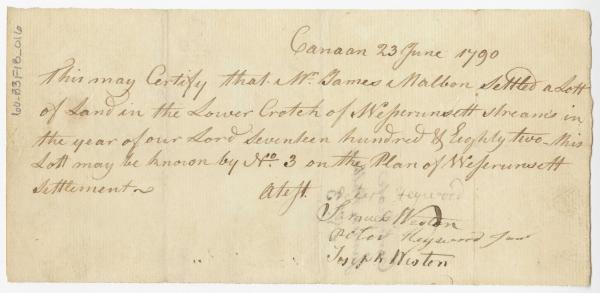 Canaan 23 June 1790
This may Certify that Mr. James Malbon Settled a Lott
of Land in the Lower Crotch of Wesserunsett streams in
the year of our Lord Seventeen hundred & Eighty two - this
Lott may be known by No. 3 on the Plan of Wesserunsett
Settlement
Atest.
Peter Heywood
Samuel Weston
Peter Heywood Junr
Joseph Weston